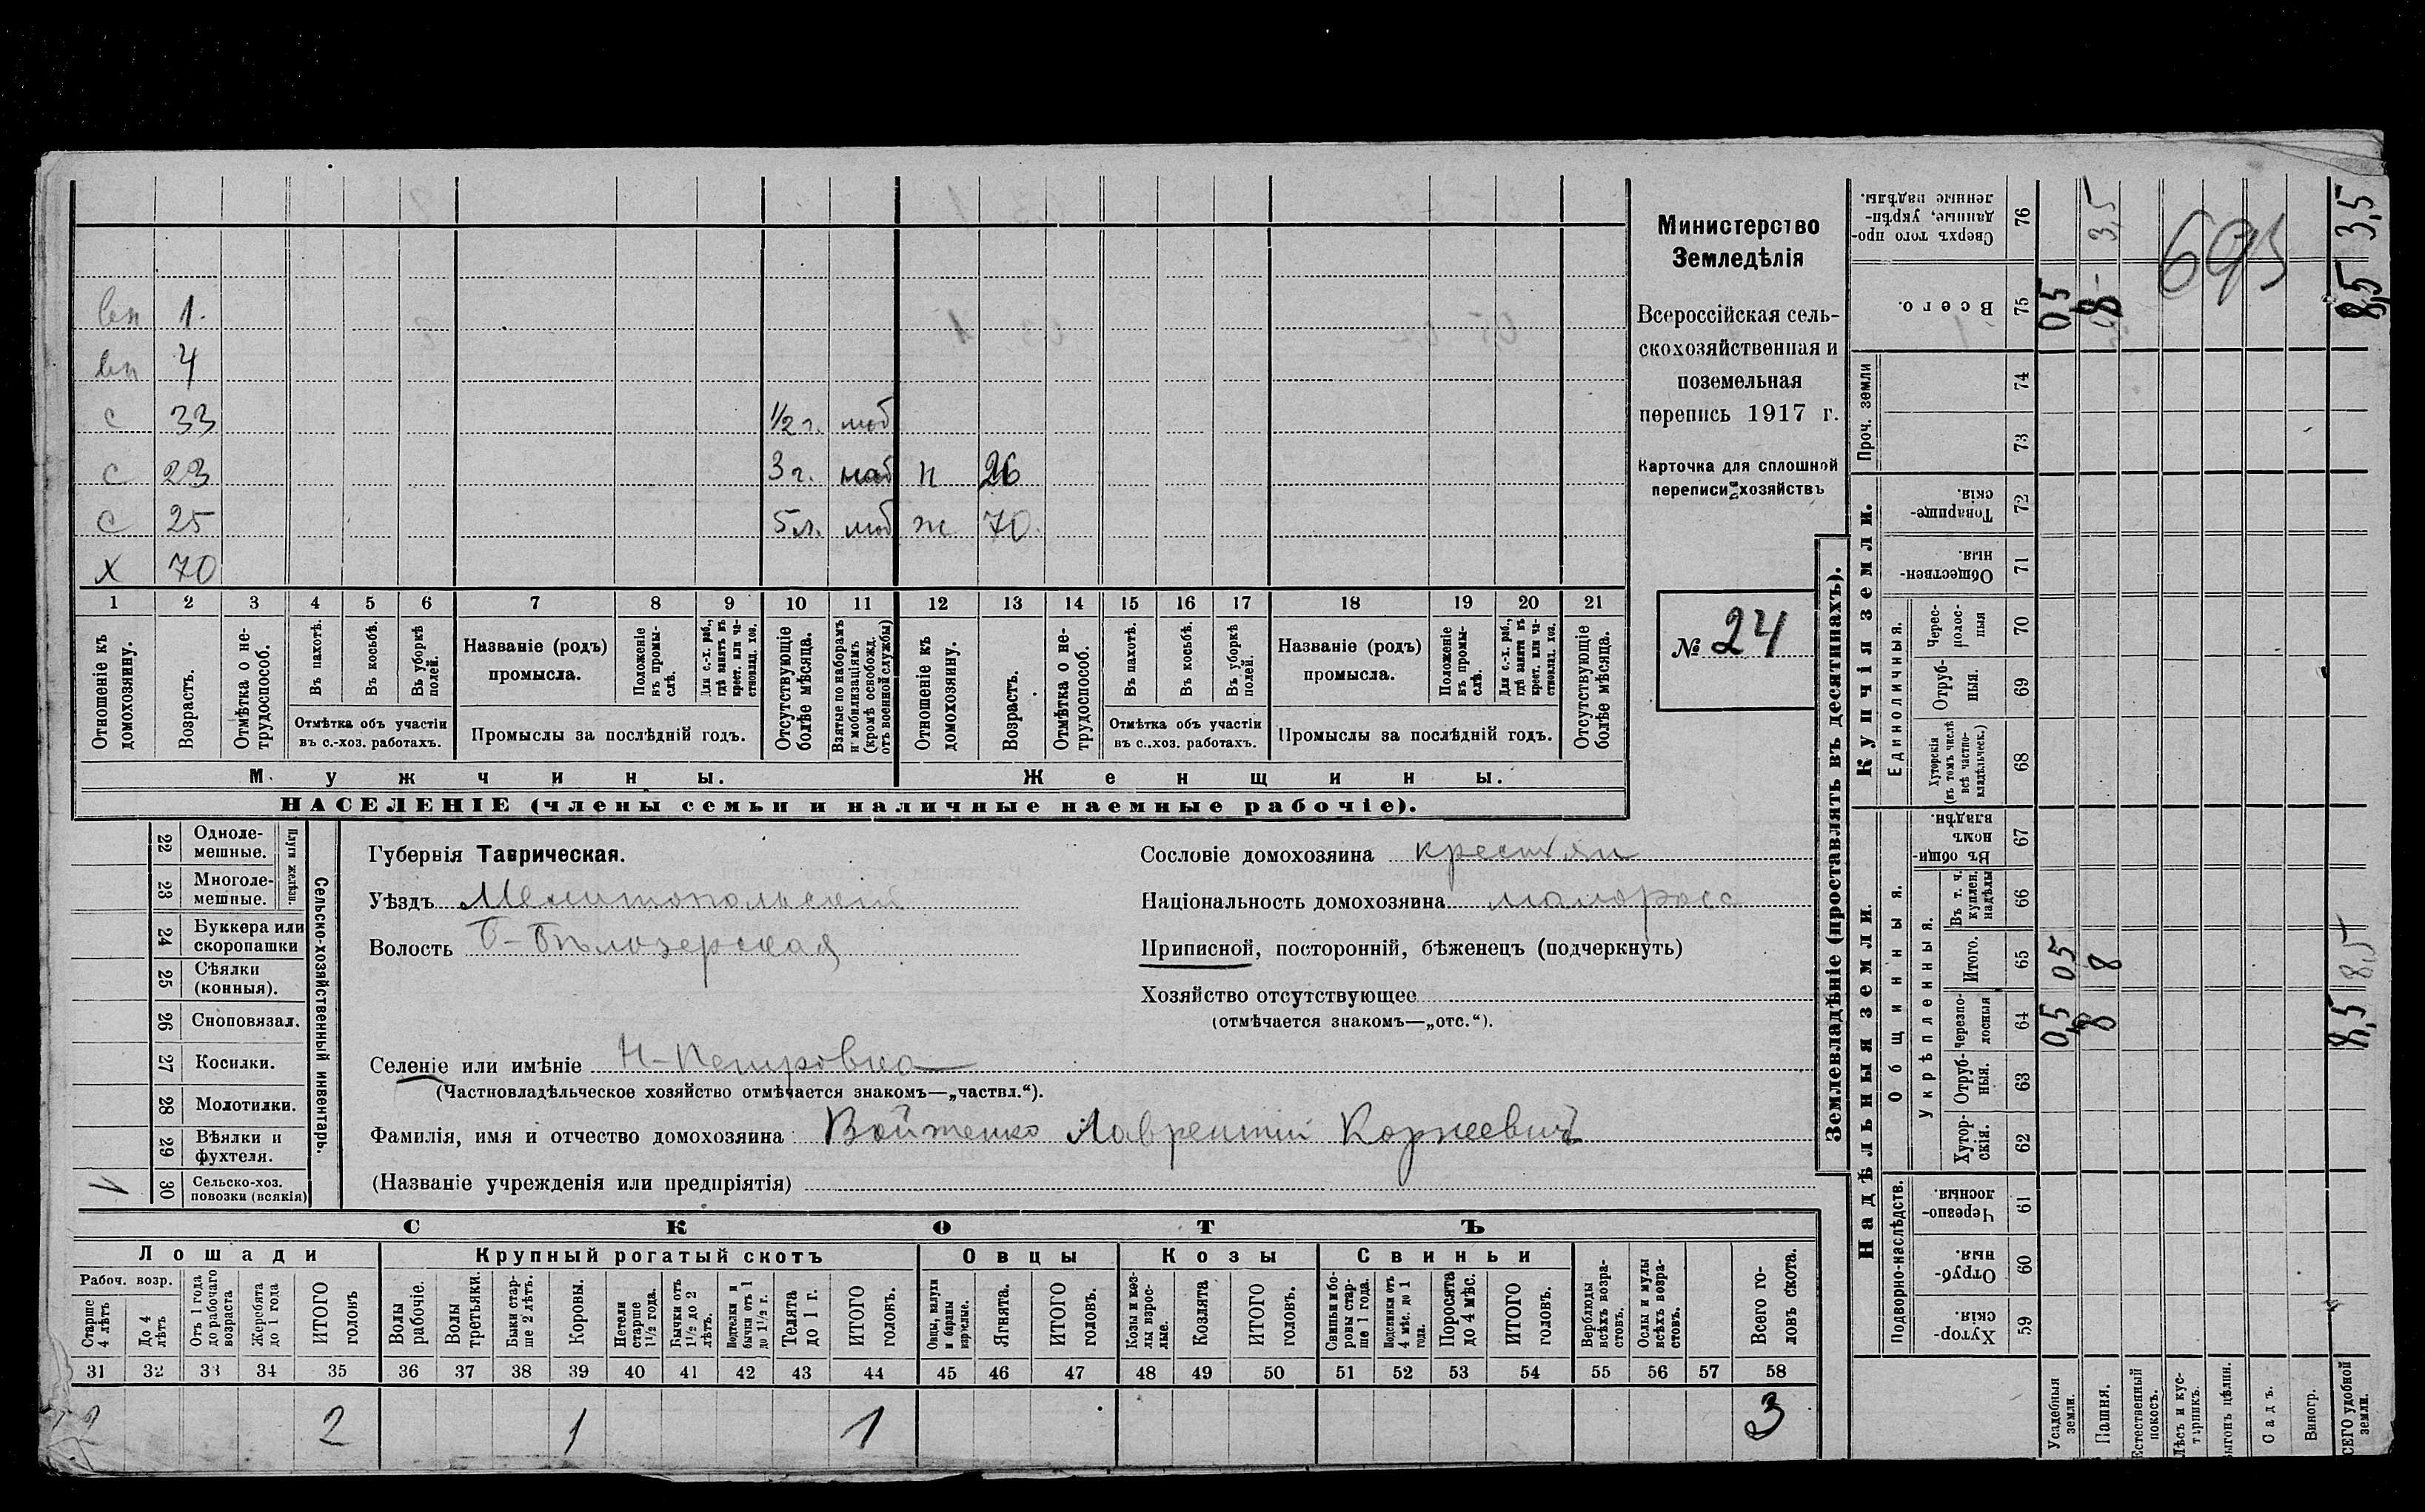 вн 1.
вн 4
с 33 1/2 г. моб
с 23 3 г. наб н 26
с 25 5 л. моб ж 70.
х 70
1 2 3 4 5 6 7 8 9 10 11 12 13 14 15 16 17 18 19 20 21
Отношеніе къ домохозяину.
Возрастъ.
Отмѣтка о не-трудоспособ.
Въ пахотѣ.
Въ косьбѣ.
Въ уборкѣ полей.
Отмѣтка объ участіи въ с.-хоз. работахъ.
Названіе (родъ) промысла.
Положеніе въ промы-слѣ.
Для с.-х. раб., гдѣ занятъ въ крест. или ча-стновлад. хоз.
Промыслы за послѣдній годъ.
Отсутствующіе болѣе мѣсяца.
Взятые по наборамъ и мобилизаціямъ (кромѣ освобожд. отъ военной службы)
Отношеніе къ домохозяину.
Возрастъ.
Отмѣтка о не-трудоспособ.
Въ пахотѣ.
Въ косьбѣ.
Въ уборкѣ полей.
Отмѣтка объ участіи въ с.-хоз. работахъ.
Названіе (родъ) промысла.
Положеніе въ промы-слѣ.
Для с.-х. раб., гдѣ занята въ крест. или ча-стновлад. хоз.
Промыслы за послѣдній годъ.
Отсутствующіе болѣе мѣсяца.
Мужчины. Женщины.
НАСЕЛЕНІЕ (члены семьи и наличные наемные рабочіе).
Министерство
Земледѣлія
Всероссійская сель-
скохозяйственная и
поземельная
перепись 1917 г.
Карточка для сплошной
переписи хозяйствъ
№ 24
22 Одноле-мешные.
23 Многоле-мешные.
Плуги желѣзн.
24 Буккера или скоропашки
25 Сѣялки (конныя).
26 Сноповязал.
27 Косилки.
28 Молотилки.
29 Вѣялки и фухтеля.
30 Сельско-хоз. повозки (всякія)
Сельско-хозяйственный инвентарь.
Губернія Таврическая.
Уѣздъ Мелитопольскій
Волость Б-Бѣлозерская
Сословіе домохозяина крестьян
Національность домохозяина малоросс
Приписной, посторонній, бѣженецъ (подчеркнуть)
Хозяйство отсутствующее
(отмѣчается знакомъ—„отс.“).
Селеніе или имѣніе Н-Петровка
(Частновладѣльческое хозяйство отмѣчается знакомъ—„частвл.“).
Фамилія, имя и отчество домохозяина Войтенко Лаврентій Корнеевичъ
(Названіе учрежденія или предпріятія)
СКОТЪ
Лошади Крупный рогатый скотъ Овцы Козы Свиньи
Рабоч. возр.
Старше 4 лѣтъ
До 4 лѣтъ
Отъ 1 года до рабочаго возраста
Жеребята до 1 года
ИТОГО головъ
Волы рабочіе.
Волы третьяки.
Быки стар-ше 2 лѣтъ.
Коровы.
Нетели старше 1 1/2 года.
Бычки отъ 1 1/2 до 2 лѣтъ.
Подтелки и бычки отъ 1 до 1 1/2 г.
Телята до 1 г.
ИТОГО головъ.
Овцы, валухи и бараны взрослые.
Ягнята.
ИТОГО головъ.
Козы и коз-лы взрос-лые.
Козлята
ИТОГО головъ.
Свиньи и бо-ровы стар-ше 1 года.
Подсвинки отъ 4 мѣс. до 1 года.
Поросята до 4 мѣс.
ИТОГО головъ.
Верблюды всѣхъ возра-стовъ.
Ослы и мулы всѣхъ возра-стовъ.
Всего го-ловъ скота.
31 32 33 34 35 36 37 38 39 40 41 42 43 44 45 46 47 48 49 50 51 52 53 54 55 56 57 58
2 2 1 1 3
Землевладѣніе (проставлять въ десятинахъ).
Купчія земли.
Надѣльныя земли.
Сверхъ того про-данные, укрѣп-ленные надѣлы. 76
Всего. 75
Проч. земли 74 73
Товарище-скія. 72
Обществен-ныя. 71
Единоличныя.
Черес-полос-ныя 70
Отруб-ныя. 69
Хуторскія (въ томъ числѣ всѣ частно-владѣльческ.) 68
Общинныя.
Въ общи-номъ владѣн. 67
Укрѣпленныя.
Въ т. ч. куплен. надѣлы 66
Итого. 65
Черезпо-лосныя 64
Отруб-ныя. 63
Хутор-скія. 62
Подворно-наслѣдств.
Черезпо-лосныя. 61
Отруб-ныя. 60
Хутор-скія. 59
Усадебныя земли. 05 05 0,5
Пашня. 3,5 8 8 8
Естественный покосъ.
Лѣсъ и кус-тарникъ.
ыгонъ цѣлин.
Садъ.
Виногр.
СЕГО удобной земли. 3,5 8,5 8,5 8,5
693